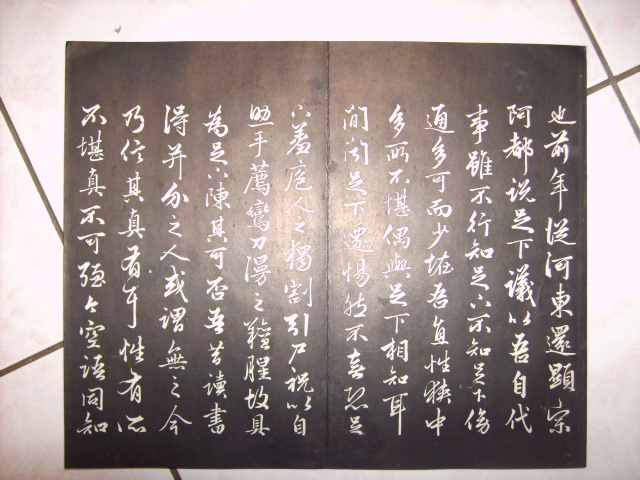 也前年從河東還顯宗
阿都說足下議以吾自代
事雖不行知足下不知足下傍
通多可而少怪吾直性狹中
多所不堪偶與足下相知耳
間聞足下遷惕然不喜恐足
下羞庖人之獨割引尸祝以自
助手薦鸞刀漫之羶腥故具
為足下陳其可否吾昔讀書
得并介之人或謂無之今
乃信其真有耳性有所
不堪真不可強今空語同知